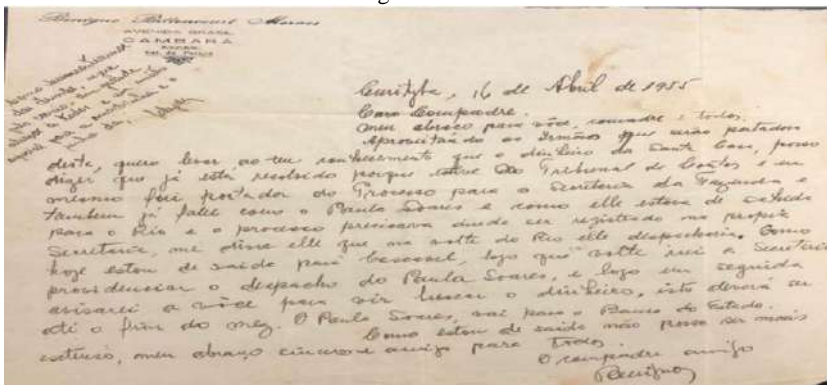 Benigno Bittencourt Moraes
AVENIDA BRASIL
CAMBARÁ
Est. do Paraná
Curityba, 16 de Abril de 1955
Caro Compadre.
Meu abraço para você, comadre e todos.
Aproveitando os Irmãos que serão portadores
desta, quero levar ao teu conhecimento que o dinheiro da Santa Casa, posso
dizer que já está resolvido porque estive no Tribunal de Contas e eu
mesmo fui portador do Processo para a Secretaria da Fazenda e
tambem já falei com o Paula Soares e como elle estava de sahida
para o Rio e o processo precisava ainda ser registrado na propria
Secretaria, me disse elle que na volta do Rio elle despacharia. Como
hoje estou de saida para Cascavel, logo que volte irei a Secretaria
providenciar o despacho do Paula Soares, e logo em seguida
avisarei a você para vir buscar o dinheiro, isto deverá ser
até o fim do mez. O Paula Soares, vai para o Banco do Estado.
Como estou de saida não posso ser mais
extenso, meu abraço sincero e amigo para todos.
O compadre amigo
Benigno